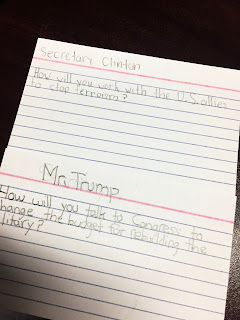 Secretary Clinton
How will you work with the U.S. allies
to stop terrorism?
Mr. Trump
How will you talk to Congress to
hange the budget for rebuilding the
litary?